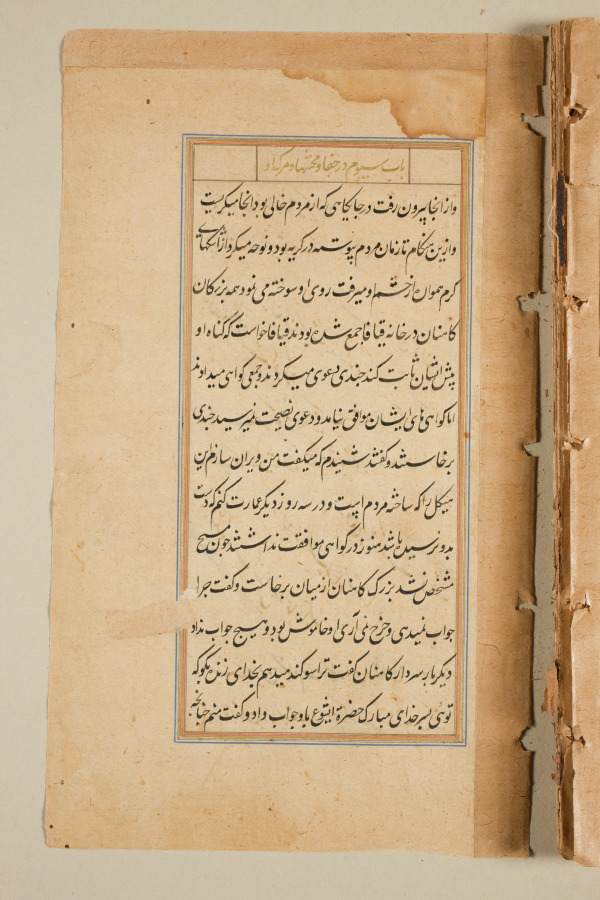 باب سیوم در جفا و محنتها و مرک او
و از انجا بیرون رفت در جایکاهی که از مردم خالی بود انجا میکریست
و از ین هنکام تا زمان مردم پیوسته در کریه بود و نوحه میکرد از اشکهای
کرم همواره از چشم او میرفت روی او سوخته می نمود همه بزرکان
کاهنان در خانه قیافا جمع شده بودند قیافا خواست که کناه او
پیش ایشان ثابت کند چندی دعوی میکردند و جمعی کواهی میدادند
اما کواهی های ایشان موافق نیامد و دعوی بصحت نمیرسید چندی
برخاستند و کفتند شنیدم که میکفت من ویران سازم این
هیکل را که ساخته مردم است و در سه روز دیکر عمارت کنم که دست
بدو نرسیده باشد هنوز در کواهی موافقت نداشتند چون هیچ
مشخص نشد بزرک کاهنان از میان برخاست و کفت چرا
جواب نمیدهی و حرفی نمی آری او خاموش بود و هیچ جواب نداد
دیکر بار سردار کاهنان کفت ترا سوکند میدهم بخدای زنده بکو که
توئی پسر خدای مبارک حضرة ایشوع باو جواب داد و کفت منم چنانچه